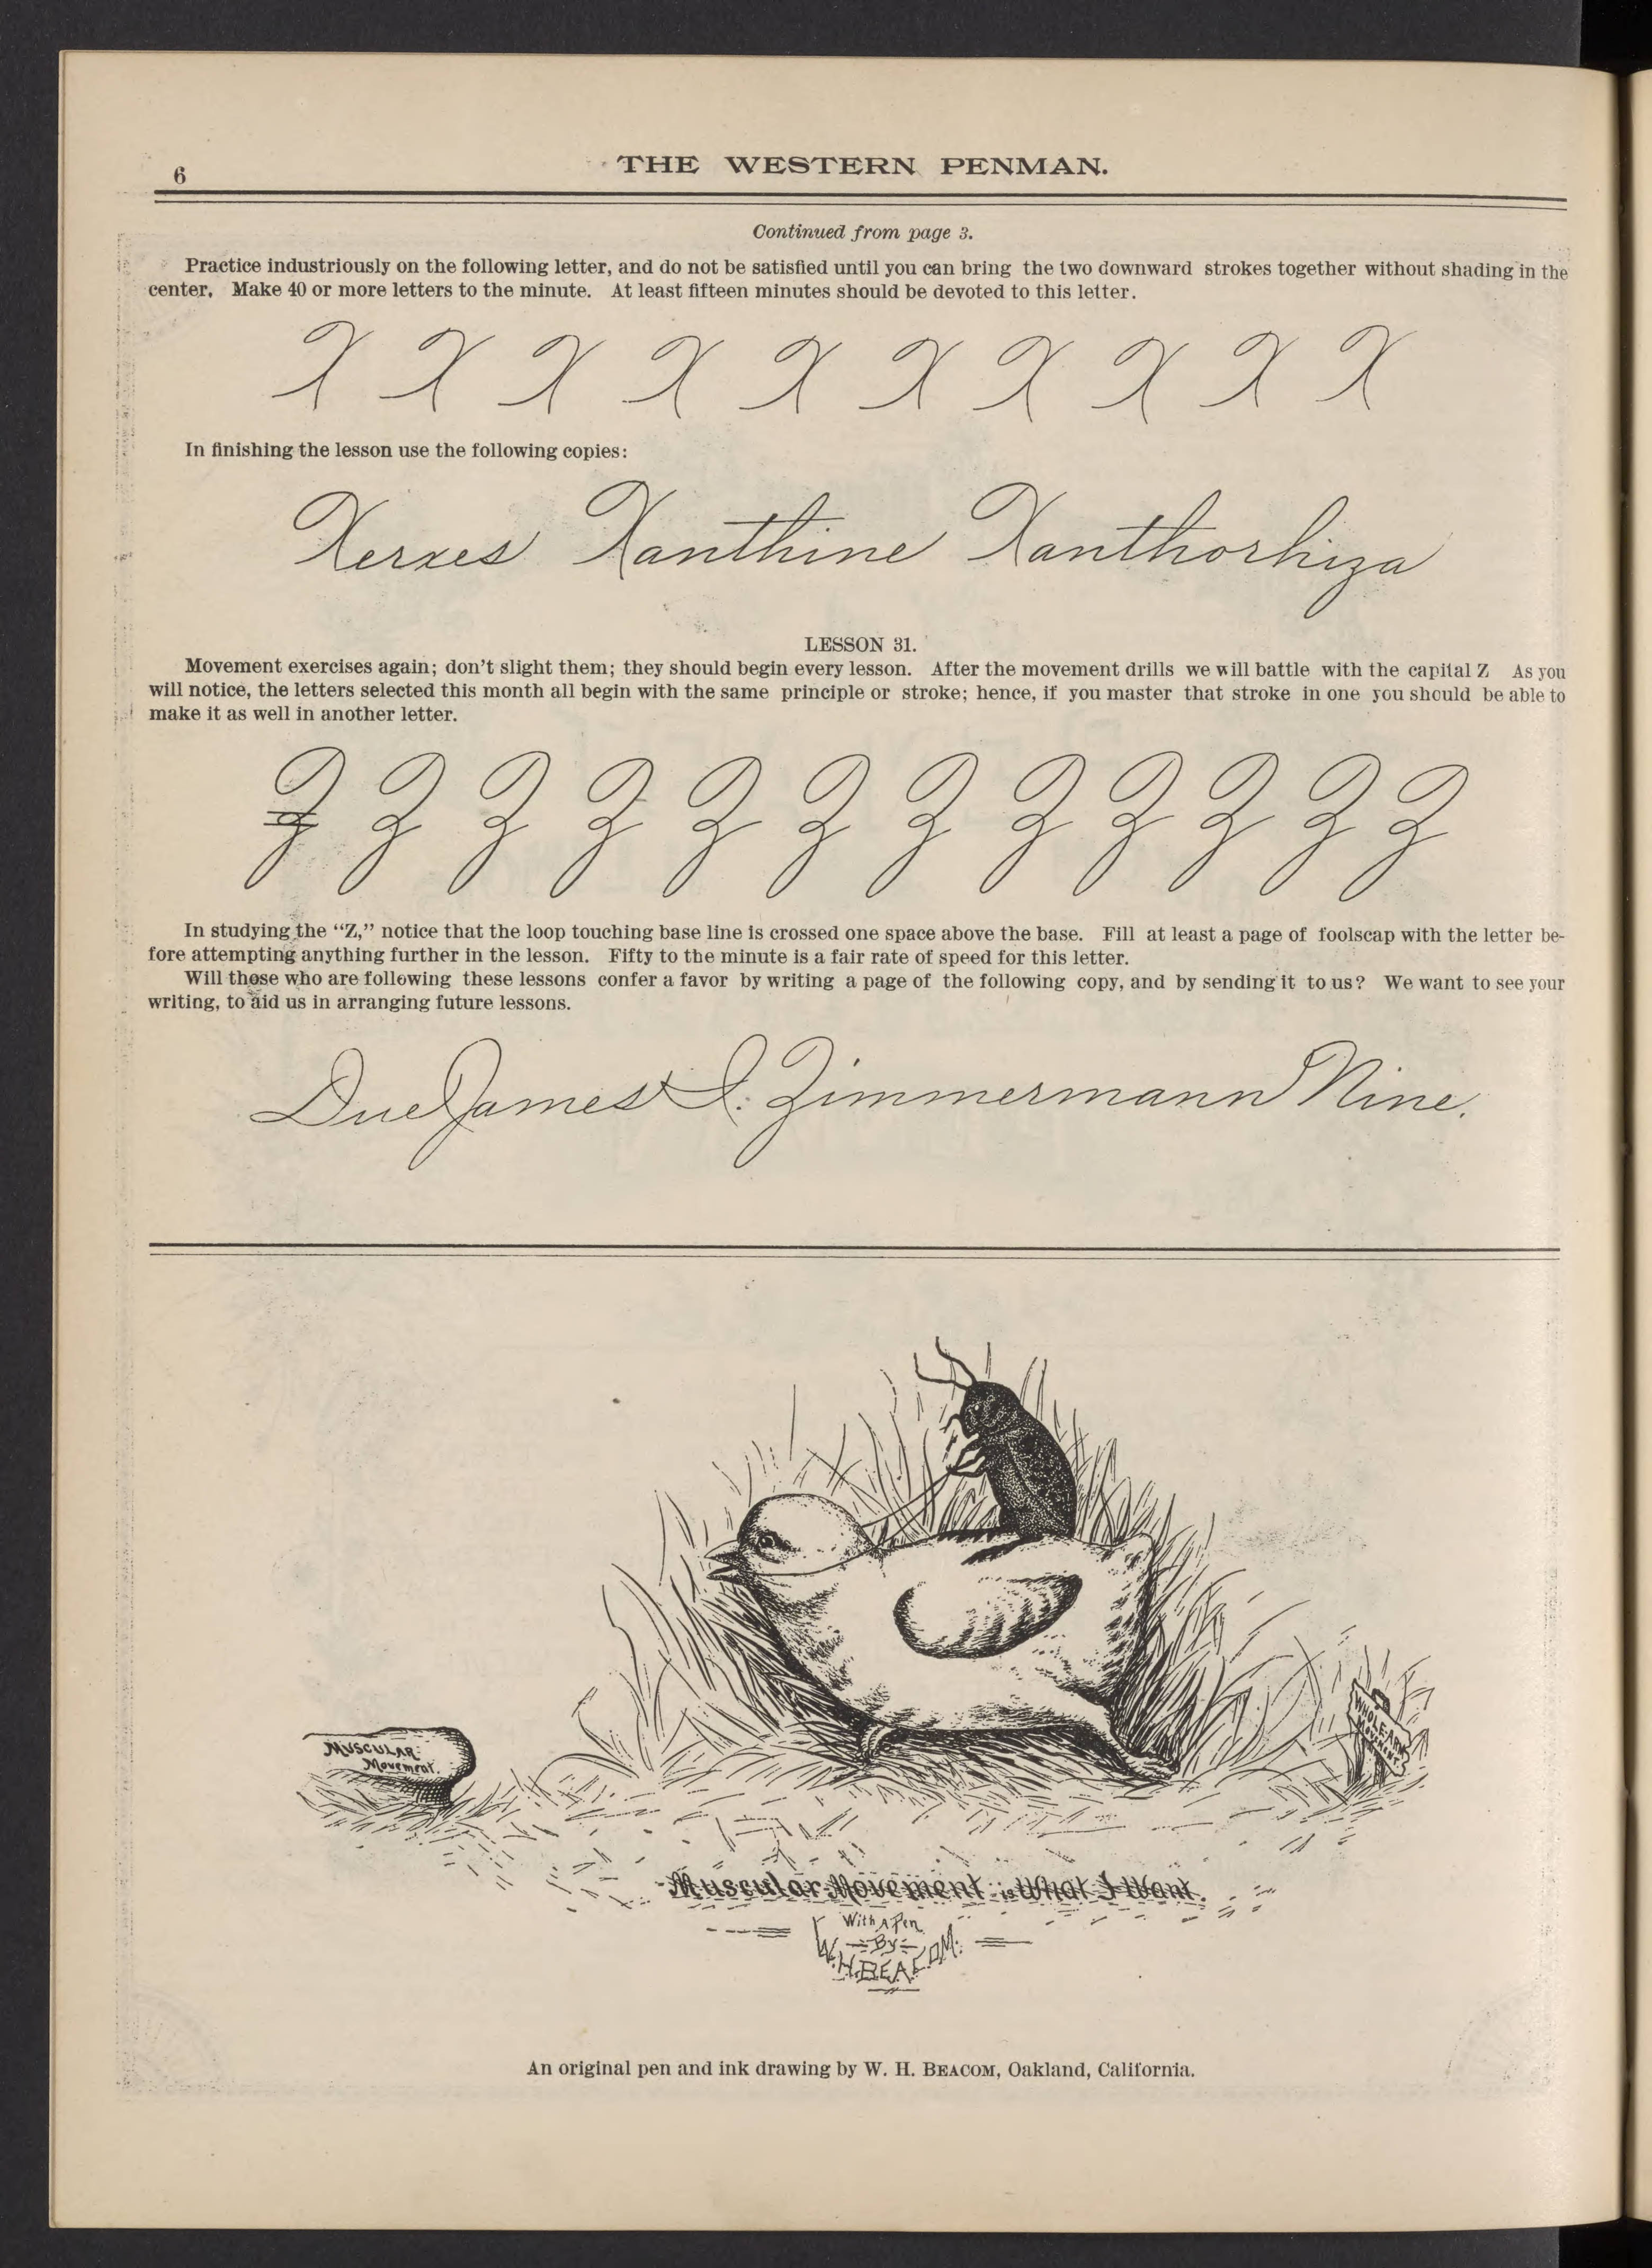 6
THE WESTERN PENMAN.
Continued from page 3.
Practice industriously on the following letter, and do not be satisfied until you can bring the two downward strokes together without shading in the
center. Make 40 or more letters to the minute. At least fifteen minutes should be devoted to this letter.
X X X X X X X X X X
In finishing the lesson use the following copies:
Xerxes Xanthine Xanthorhiza
LESSON 31.
Movement exercises again; don't slight them; they should begin every lesson. After the movement drills we will battle with the capital Z As you
will notice, the letters selected this month all begin with the same principle or stroke; hence, if you master that stroke in one you should be able to
make it as well in another letter.
Z Z Z Z Z Z Z Z Z Z Z Z
In studying the "Z," notice that the loop touching base line is crossed one space above the base. Fill at least a page of foolscap with the letter be-
fore attempting anything further in the lesson. Fifty to the minute is a fair rate of speed for this letter.
Will those who are following these lessons confer a favor by writing a page of the following copy, and by sending it to us? We want to see your
writing, to aid us in arranging future lessons.
Due James I. Zimmermann Nine.
MUSCULAR
Movement.
WHOLE-ARM
MOVEMENT
Muscular Movement is What I Want.
With A Pen
By
W.H.BEACOM.
An original pen and ink drawing by W. H. BEACOM, Oakland, California.